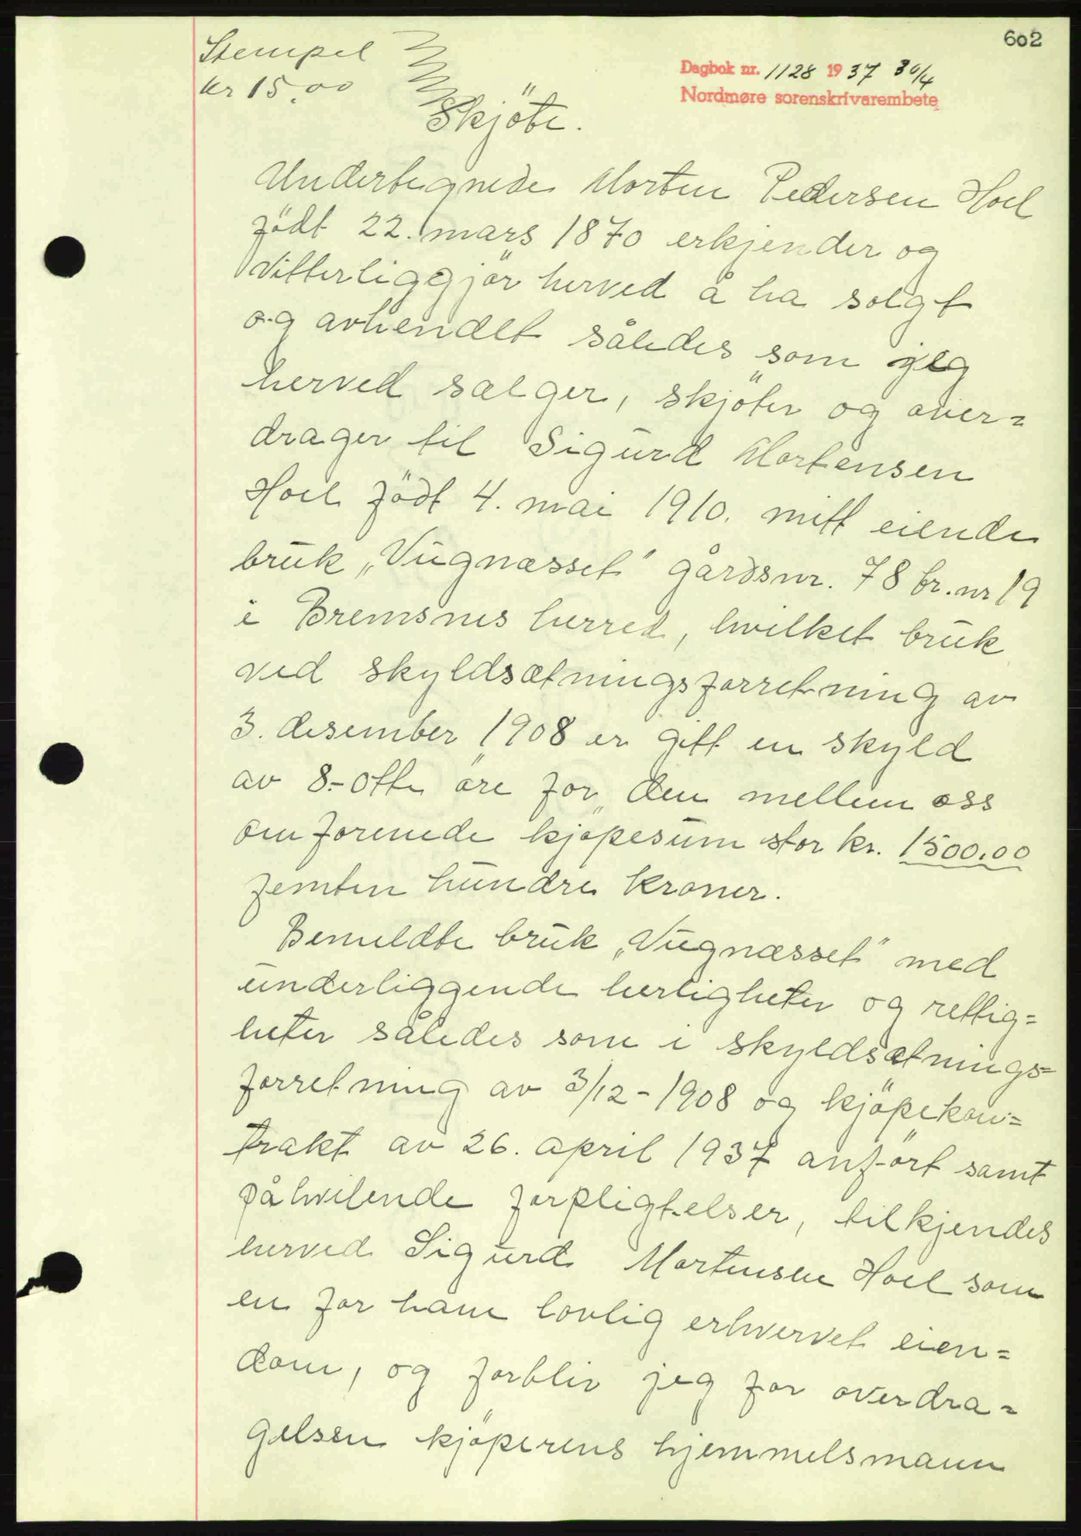 602
Stempel
kr 15.00
Dagbok nr. 1128 1937 30/4
Nordmøre sorenskrivarembete
Skjöte.
Undertegnede Morten Pedersen Hoel
född 22. mars 1870 erkjender og
vitterliggjör herved å ha solgt
og avhendet således som jeg
herved sælger, skjöter og over=
drager til Sigurd Mortensen
Hoel född 4. mai 1910. mitt eiende
bruk „Vugnæsset" gårdsnr. 78 br. nr 19
i Bremsnes herred, hvilket bruk
ved skyldsætningsforretning av
3. desember 1908 er gitt en skyld
av 8.- otte öre for den mellem oss
omforenede kjöpesum stor kr. 1500.00
femten hundre kroner.
Bemeldte bruk „Vugnæsset" med
underliggende herligheter og rettig=
heter således som i skyldsætnings=
forretning av 3/12 - 1908 og kjöpekon=
trakt av 26. april 1937 anfört samt
påhvilende forpligtelser, tilkjendes
herved Sigurd Mortensen Hoel som
en for ham lovlig erhvervet eien=
dom, og forblir jeg for overdra=
gelsen kjöperens hjemmelsmann